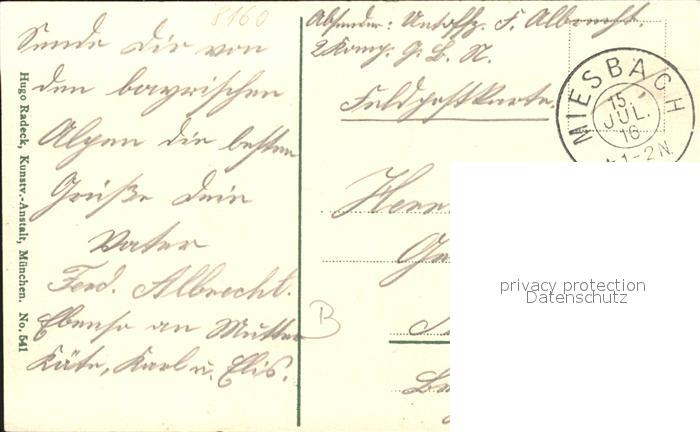 8160
Sende Dir von
den bayrischen
Alpen die besten
Grüße Dein
Vater
Ferd. Albrecht.
Ebenso an Mutter
Käte, Karl u. Elis.
Hugo Radeck, Kunstv.-Anstalt, München. No. 541
Absender: Untoffz. F. Albrecht.
2 Komp. G. L. N.
Feldpostkarte.
MIESBACH
15.
JUL.
16
1-2 N.
Herrn
B
privacy protection
Datenschutz